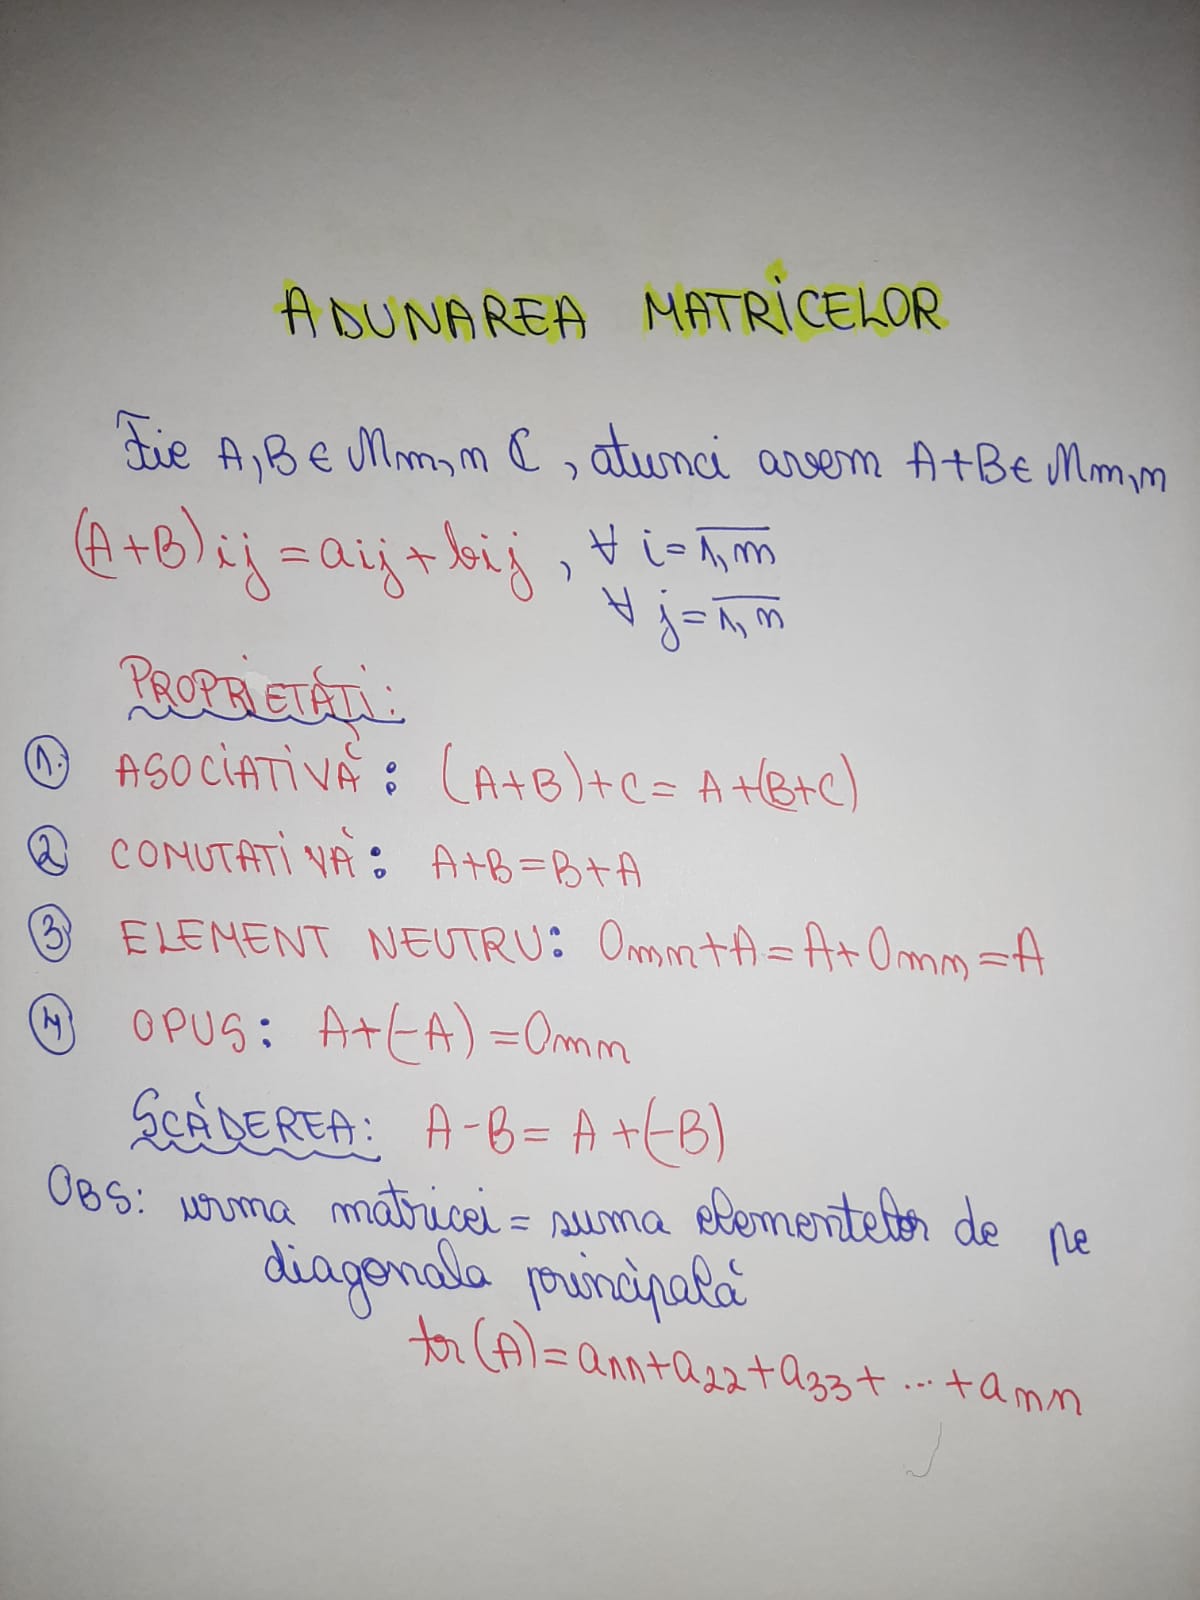 ADUNAREA MATRICELOR
Fie A,B ∈ Mm,n C, atunci avem A+B∈ Mm,n
(A+B)ij = aij + bij, ∀ i = 1,m
∀ j = 1,n
PROPRIETĂȚI:
1. ASOCIATIVĂ: (A+B)+C = A+(B+C)
2 COMUTATIVĂ: A+B=B+A
3 ELEMENT NEUTRU: 0mn+A = A+0mn = A
4 OPUS: A+(-A) = 0mn
SCĂDEREA: A-B = A+(-B)
OBS: urma matricei = suma elementelor de pe
diagonala principală
tr(A) = a11+a22+a33+...+ann